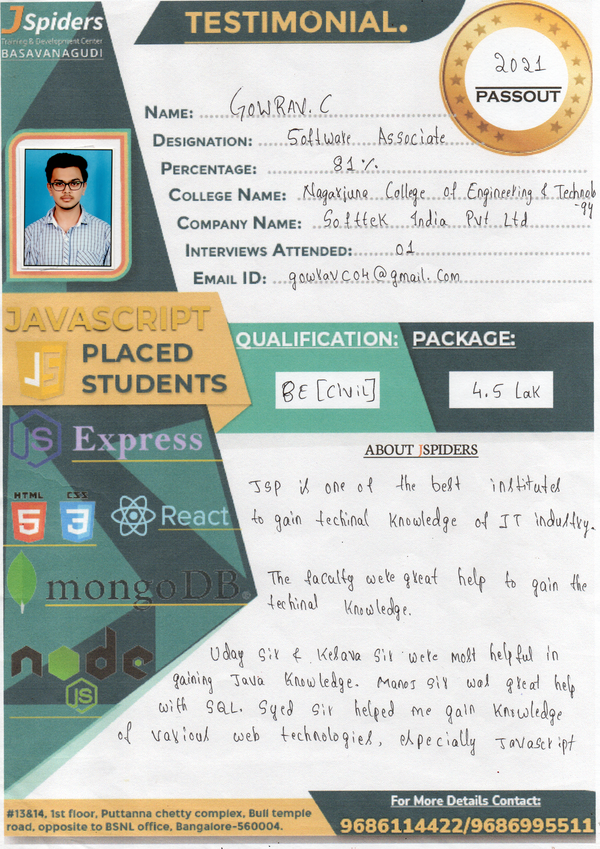 JSpiders
Training & Development Center
BASAVANAGUDI
TESTIMONIAL.
2021
PASSOUT
NAME: GOWRAV. C
DESIGNATION: Software Associate
PERCENTAGE: 81 %
COLLEGE NAME: Nagarjuna College of Engineering & Technolo
-gy
COMPANY NAME: Softtek India Pvt Ltd
INTERVIEWS ATTENDED: 01
EMAIL ID: gowravc04@gmail.com
JAVASCRIPT
JS
PLACED
STUDENTS
QUALIFICATION: PACKAGE:
BE [Civil] 4.5 Lak
JS Express
HTML CSS
5 3 React
mongoDB®
node
JS
ABOUT JSPIDERS
JSP is one of the best institutes
to gain techinal knowledge of IT industry.
The faculty were great help to gain the
techinal knowledge.
Uday Sir & Kesava Sir were most helpful in
gaining Java knowledge. Manos sir was great help
with SQL. Syed Sir helped me gain knowledge
of various web technologies, especially Javascript
#13&14, 1st floor, Puttanna chetty complex, Bull temple
road, opposite to BSNL office, Bangalore-560004.
For More Details Contact:
9686114422/9686995511